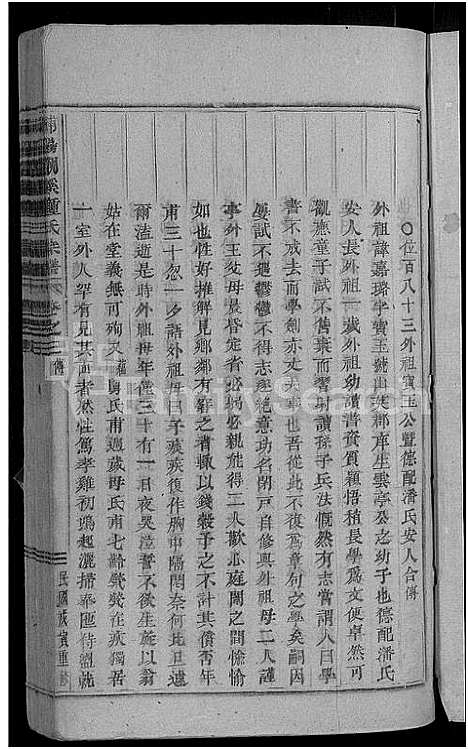 位百八十三外祖寳玉公暨德配潘氏安人合傳
外祖諱嘉璐字寳玉號山英郡庠生雲亭公之幼子也德配潘氏
安人長外祖一歲外祖幼讀書資質穎悟稍長學爲文便卓然可
觀應童子試不售棄而習射讀孫子兵法慨然有志嘗謂人曰學
書不成去而學劍亦丈夫事也吾從此不復爲章句之學矣嗣因
屢試不遇鬱鬱不得志遂絶意功名閉戸自修與外祖母二人謹
事外王父母晨昏定省必躬必親能得二人歡心庭闈之間愉愉
如也性好推解見鄉鄰有窮乏者輒以錢穀予之不計其償否年
甫三十忽一夕語外祖母曰予痰疾復作胸中隔悶奈何比旦遽
爾洁逝是時外祖母年僅三十有一日夜哭泣誓不欲生旋以翁
姑在堂義無可殉又舅氏甫週歲母氏甫七齡煢煢在疚獨居
一室外人罕有見其面者然性篤孝雞初鳴起灑掃奉匜侍盥
浦陽
溪鍾氏宗譜
卷之三
傳
民國戊寅重修
familysearch